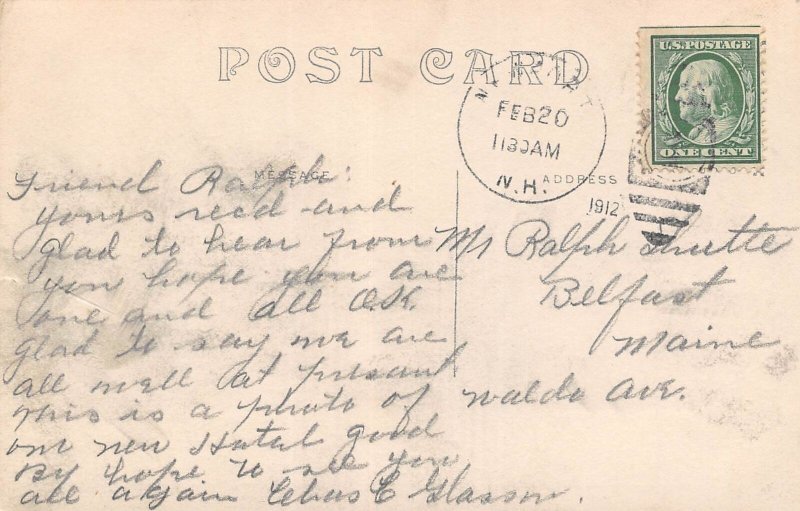 POST CARD
U.S. POSTAGE
ONE CENT
FEB 20
1130AM
N.H.
1912
MESSAGE
ADDRESS
Friend Ralph:
yours recd and
glad to hear from
you hope you are
one and all O.K.
glad to say we are
all well at present
This is a photo of
our new Hotel good
By hope to see you
all again Chas E Glasson.
Mr Ralph Shutte
Belfast
Maine
Waldo Ave.